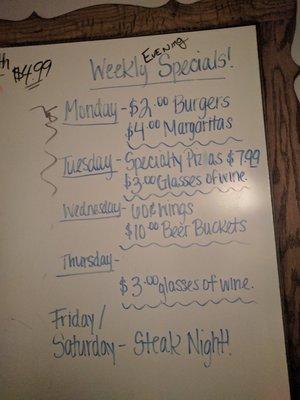 th
$4.99
Evening
Weekly Specials!
Monday - $2.00 Burgers
$4.00 Margaritas
Tuesday - Specialty Pizzas $7.99
$3.00 Glasses of wine.
Wednesday - 60¢ Wings
$10.00 Beer Buckets
Thursday -
$3.00 glasses of wine.
Friday/
Saturday - Steak Night!